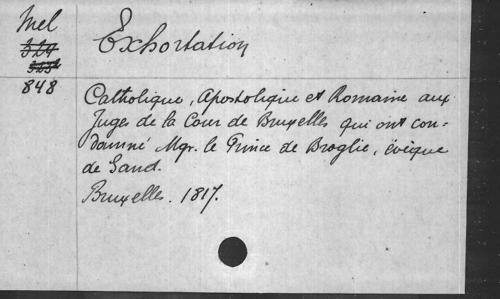 Mel
848
Exhortation
Catholique, Apostolique et Romaine aux
Juges de la Cour de Bruxelles qui ont con-
damné Mgr. le Prince de Broglie, évêque
de Gand.
Bruxelles. 1817.